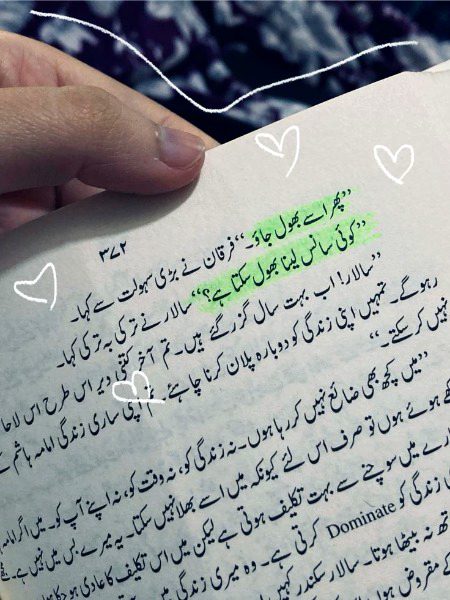 ۳۷۲
”پھر اسے بھول جاؤ۔“ فرقان نے بڑی سہولت سے کہا۔
”کوئی سانس لینا بھول سکتا ہے؟“ سالار نے ترکی بہ ترکی کہا۔
”سالار! اب بہت سال گزر گئے ہیں۔ تم آخر کتنی دیر اس طرح اس لاحا
رہو گے۔ تمہیں اپنی زندگی کو دوبارہ پلان کرنا چاہئے۔ تم اپنی ساری زندگی امامہ ہاشم کے
نہیں کر سکتے۔“
”میں کچھ بھی ضائع نہیں کر رہا ہوں۔ نہ زندگی کو، نہ وقت کو، نہ اپنے آپ کو۔ میں اگر امامہ
ھے ہوئے ہوں تو صرف اس لئے کیونکہ میں اسے بھلا نہیں سکتا۔ یہ میرے بس میں نہیں ہے۔
رے میں سوچنے سے بہت تکلیف ہوتی ہے لیکن میں اس تکلیف کا عادی ہو چکا
زندگی کو Dominate کرتی ہے۔ وہ میری زندگی میں
تھ نہ بیٹھا ہوتا۔ سالار سکندر کہیں
کے مقروض ہوں